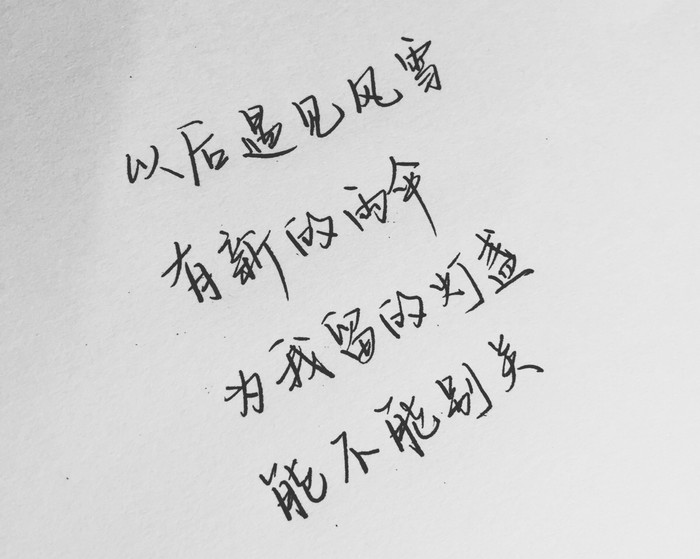 以后遇见风雪
有新的雨伞
为我留的灯盏
能不能别关